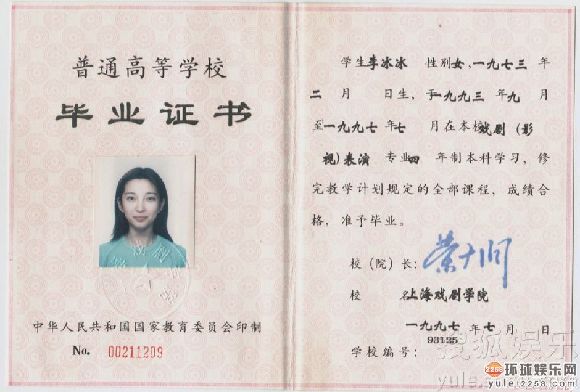 普通高等学校
毕业证书
中华人民共和国国家教育委员会印制
No. 00211209
学生李冰冰 性别女,一九七三 年
二 月 日生,于一九九三 年 九 月
至一九九七年七 月在本校戏剧(影
视)表演 专业四 年制本科学习,修
完教学计划规定的全部课程,成绩合
格,准予毕业。
校(院)长:
校 名上海戏剧学院
一九九七年七月 日
学校编号: 93125
搜狐娱乐
2258.com 环球娱乐网
yule.2258.com